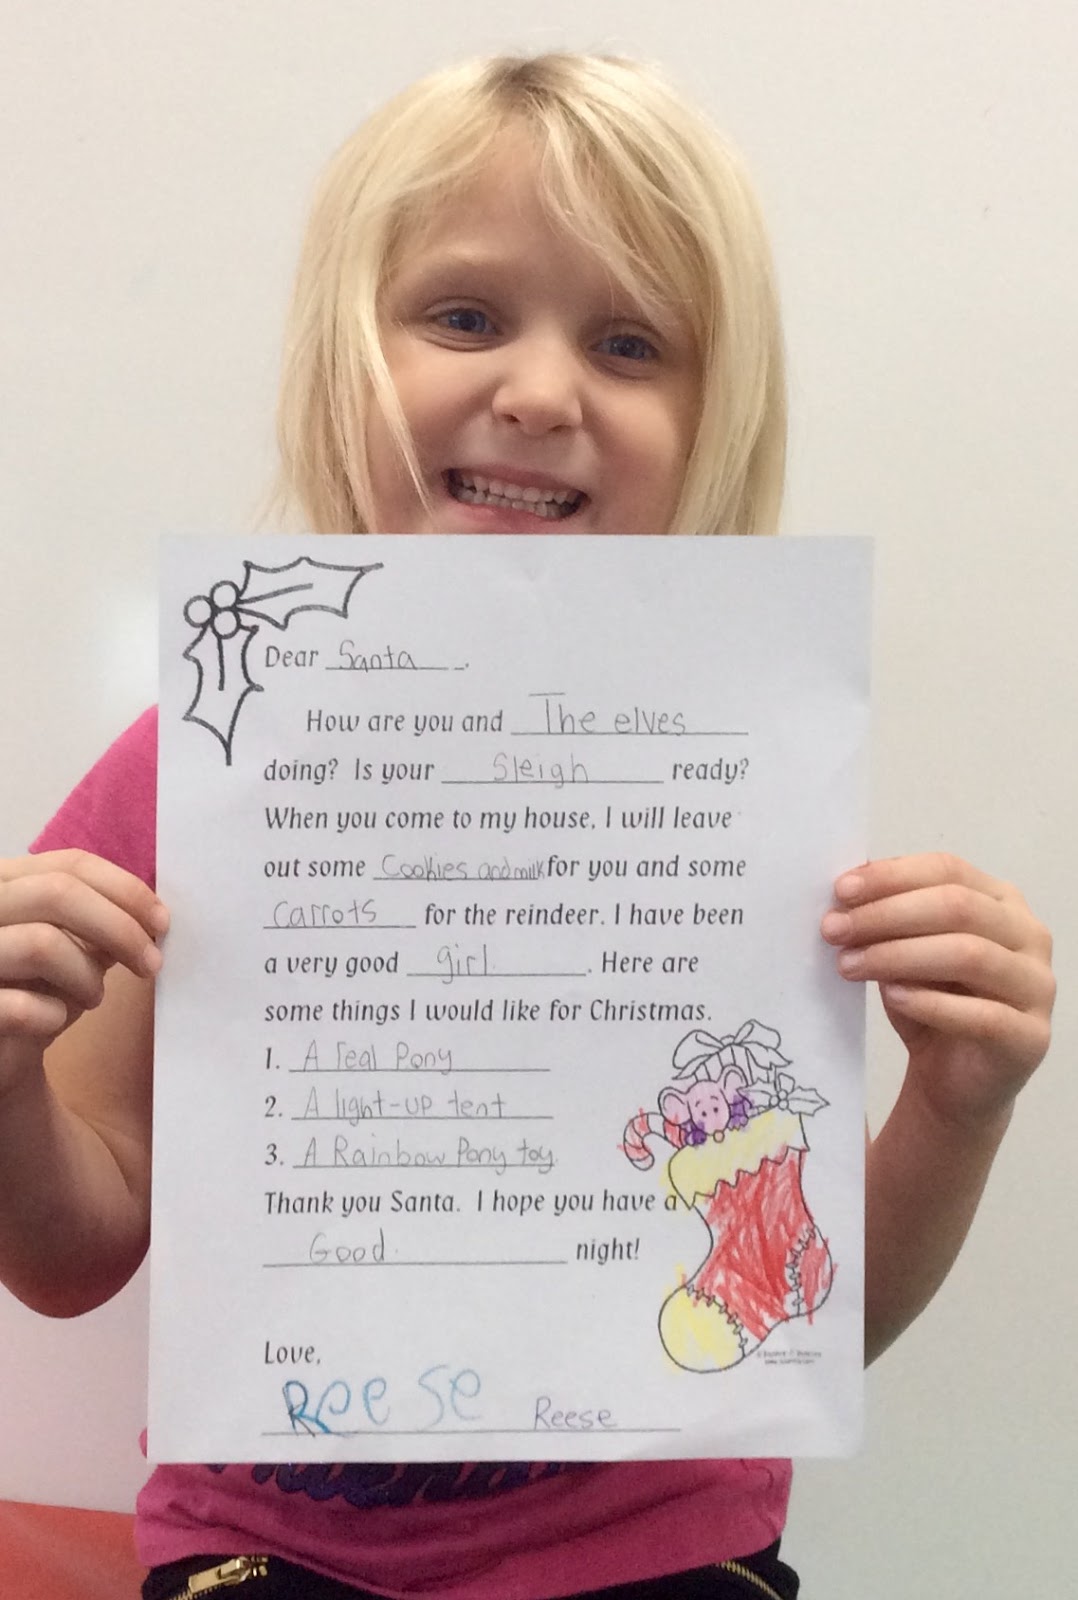 Dear Santa.
How are you and The elves
doing? Is your Sleigh ready?
When you come to my house, I will leave
out some Cookies and milk for you and some
Carrots for the reindeer. I have been
a very good girl. Here are
some things I would like for Christmas.
1. A real Pony
2. A light-up tent
3. A Rainbow Pony toy.
Thank you Santa. I hope you have a
Good night!
Love,
Reese Reese